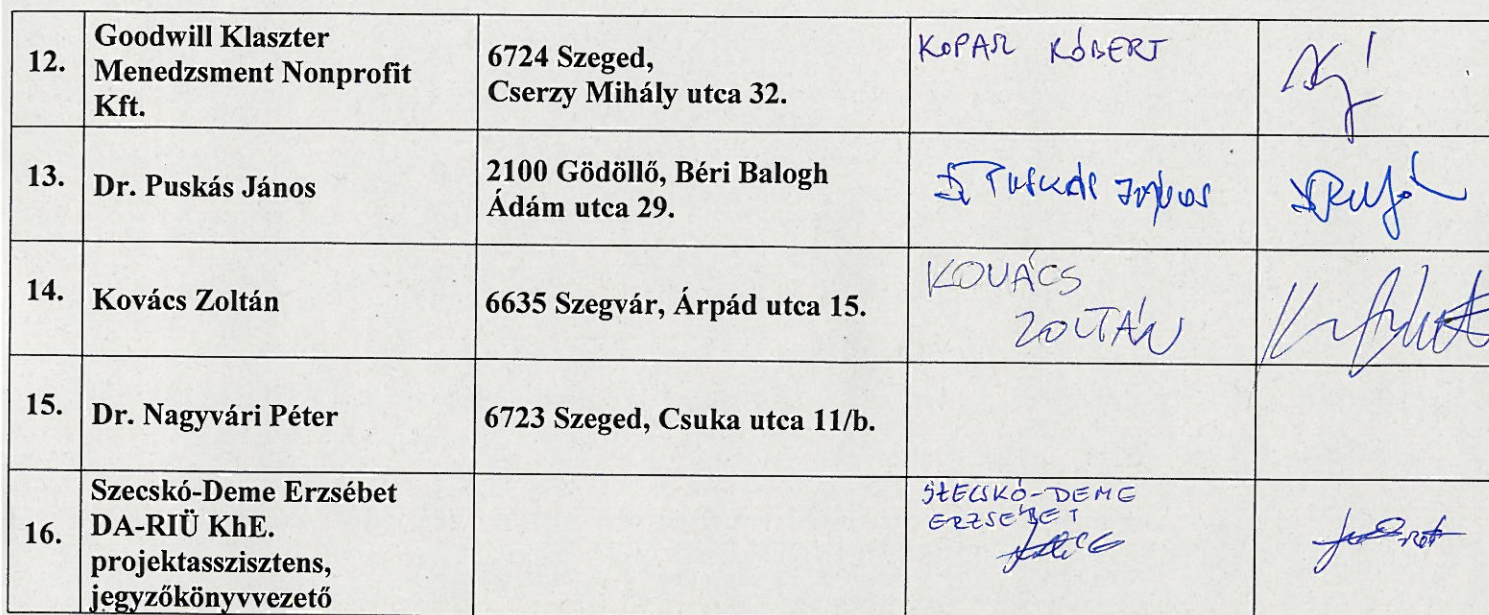 12.
Goodwill Klaszter
Menedzsment Nonprofit
Kft.
6724 Szeged,
Cserzy Mihály utca 32.
KOPÁR RÓBERT
13.
Dr. Puskás János
2100 Gödöllő, Béri Balogh
Ádám utca 29.
Dr Puskás János
14.
Kovács Zoltán
6635 Szegvár, Árpád utca 15.
KOVÁCS
ZOLTÁN
15.
Dr. Nagyvári Péter
6723 Szeged, Csuka utca 11/b.
16.
Szecskó-Deme Erzsébet
DA-RIÜ KhE.
projektasszisztens,
jegyzőkönyvvezető
SZECSKÓ-DEME
ERZSÉBET